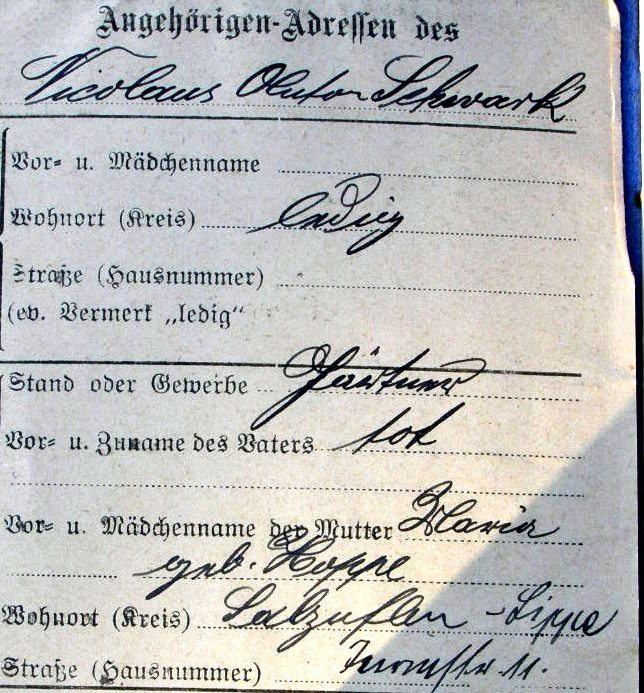 Angehörigen-Adressen des
Nicolaus Anton Schwark
Vor- u. Mädchenname
Wohnort (Kreis) ledig
Straße (Hausnummer)
(ev. Vermerk „ledig“
Stand oder Gewerbe Gärtner
Vor- u. Zuname des Vaters tot
Vor- u. Mädchenname der Mutter Maria
geb. Hoppe
Wohnort (Kreis) Salzuflen - Lippe
Straße (Hausnummer) 11.